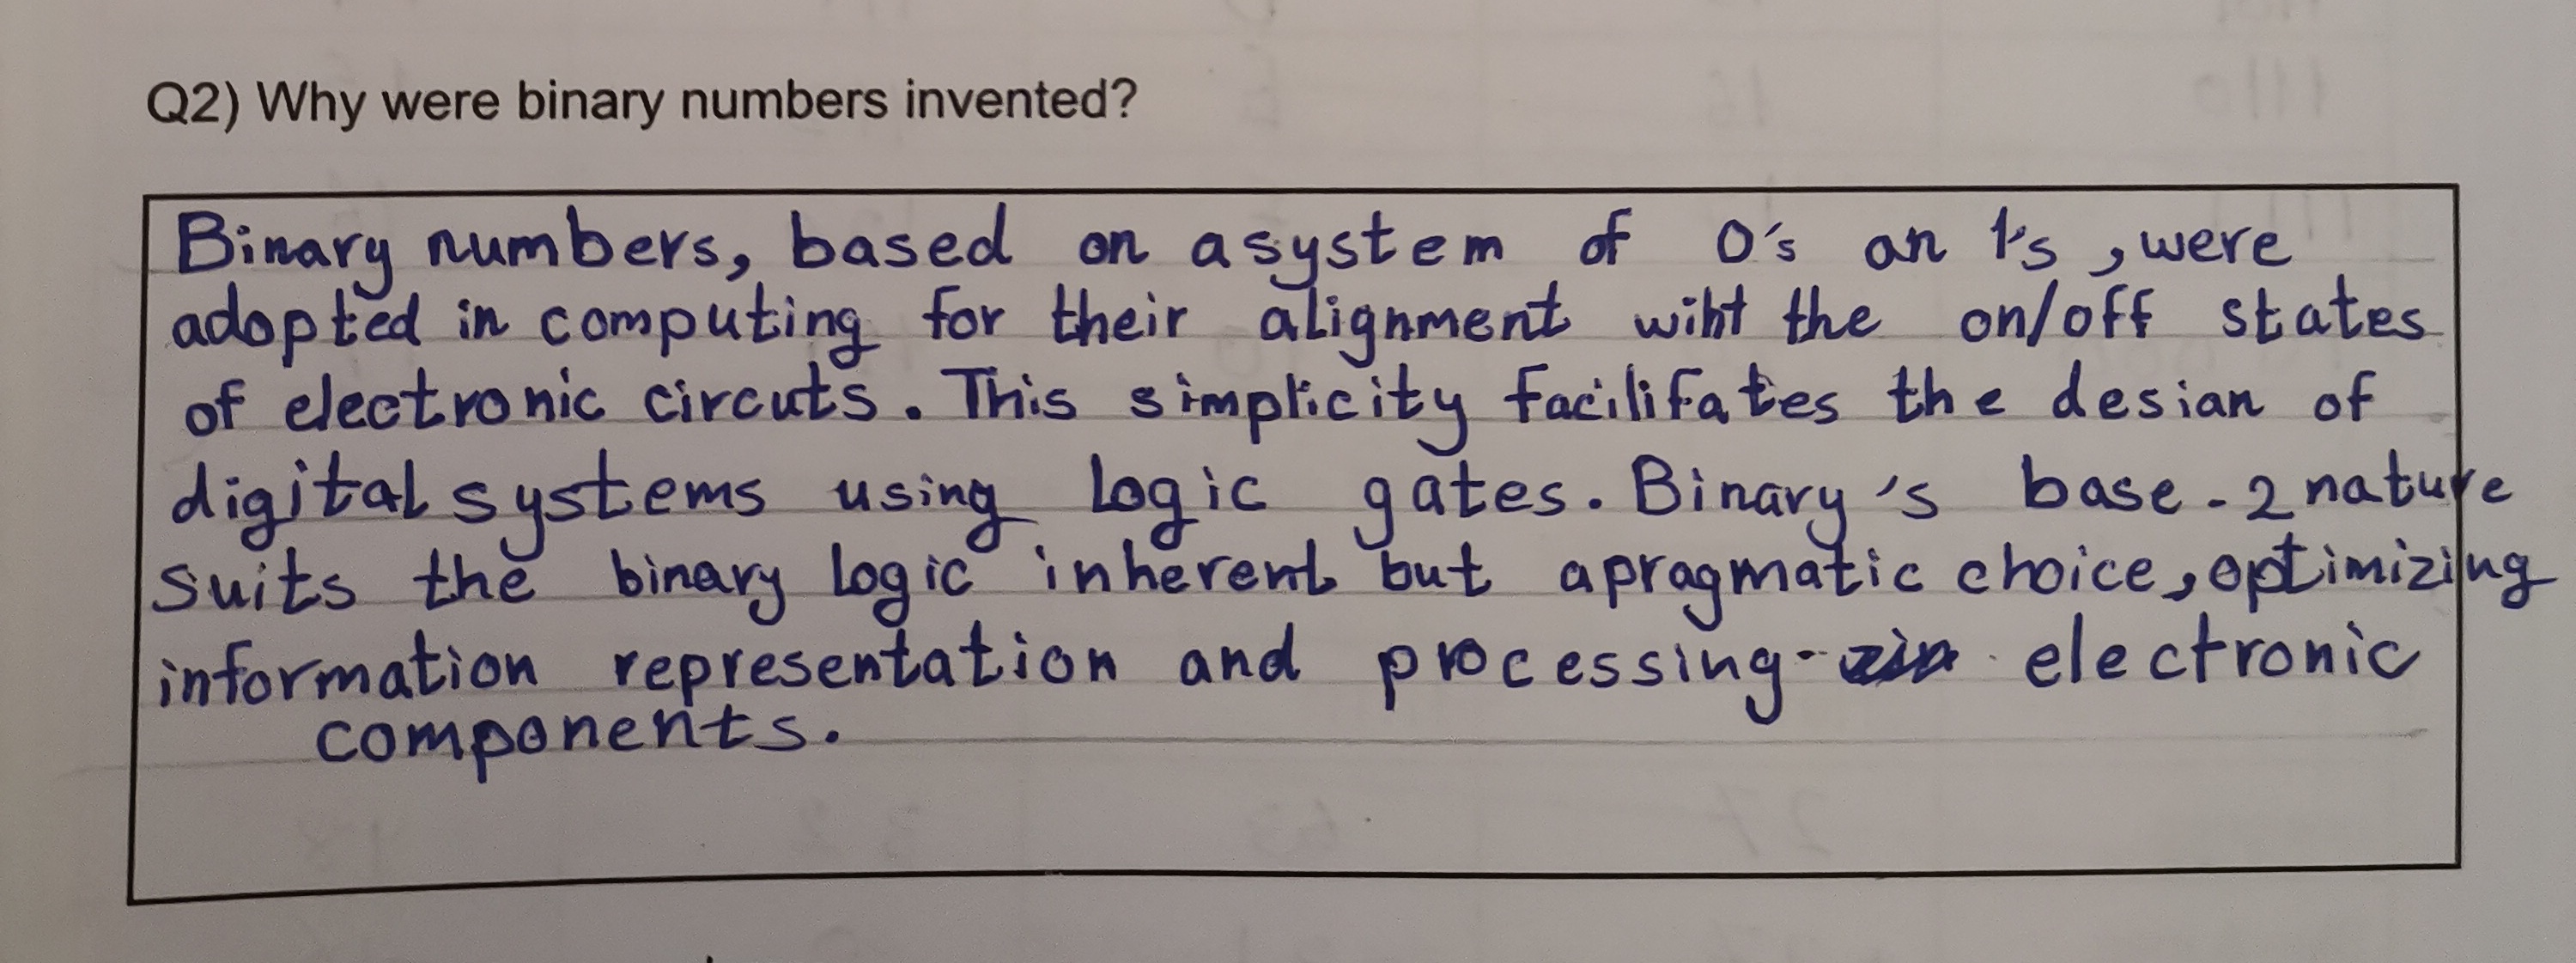 Q2) Why were binary numbers invented?
Binary numbers, based on a system of 0's an 1's, were
adopted in computing for their alignment wiht the on/off states
of electronic circuts. This simplicity facilifates the desian of
digital systems using logic gates. Binary's base-2 nature
suits the binary logic inherent but a pragmatic choice, optimizing
information representation and processing electronic
components.